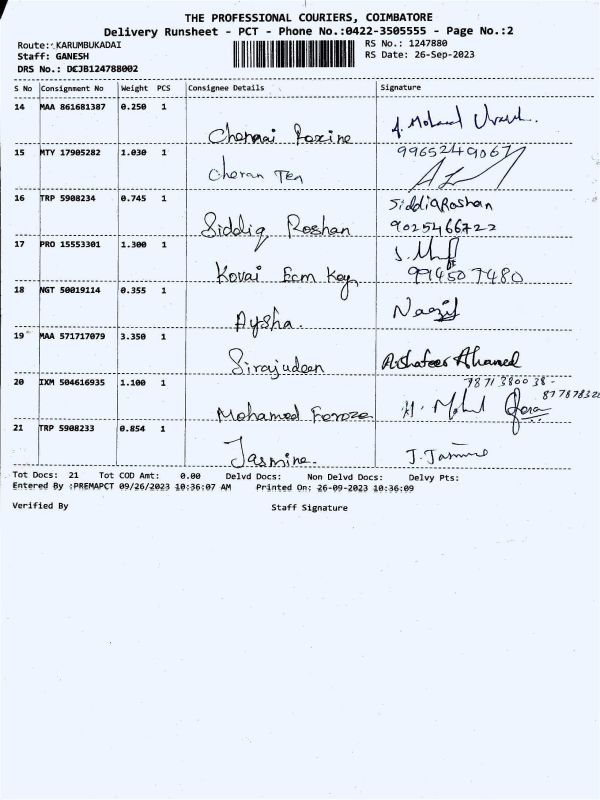 THE PROFESSIONAL COURIERS, COIMBATORE
Delivery Runsheet - PCT - Phone No.:0422-3505555 - Page No.:2
Route: KARUMBUKADAI
Staff: GANESH
DRS No.: DCJB124788002
RS No.: 1247880
RS Date: 26-Sep-2023
S No Consignment No Weight PCS Consignee Details Signature
14 MAA 861681387 0.250 1 Chennai
15 MTY 17905282 1.030 1 Cheran Tea 9965249067
16 TRP 5908234 0.745 1 Siddiq Roshan SiddiqRoshan
9025466722
17 PRO 15553301 1.300 1 Kovai
994507480
18 NGT 50019114 0.355 1 Aysha.
19 MAA 571717079 3.350 1 Sirajudeen Ahamed
20 IXM 504616935 1.100 1 Mohamed Feroze
21 TRP 5908233 0.854 1 Jasmine. J. Jasmine
Tot Docs: 21 Tot COD Amt: 0.00 Delvd Docs: Non Delvd Docs: Delvy Pts:
Entered By :PREMAPCT 09/26/2023 10:36:07 AM Printed On: 26-09-2023 10:36:09
Verified By Staff Signature